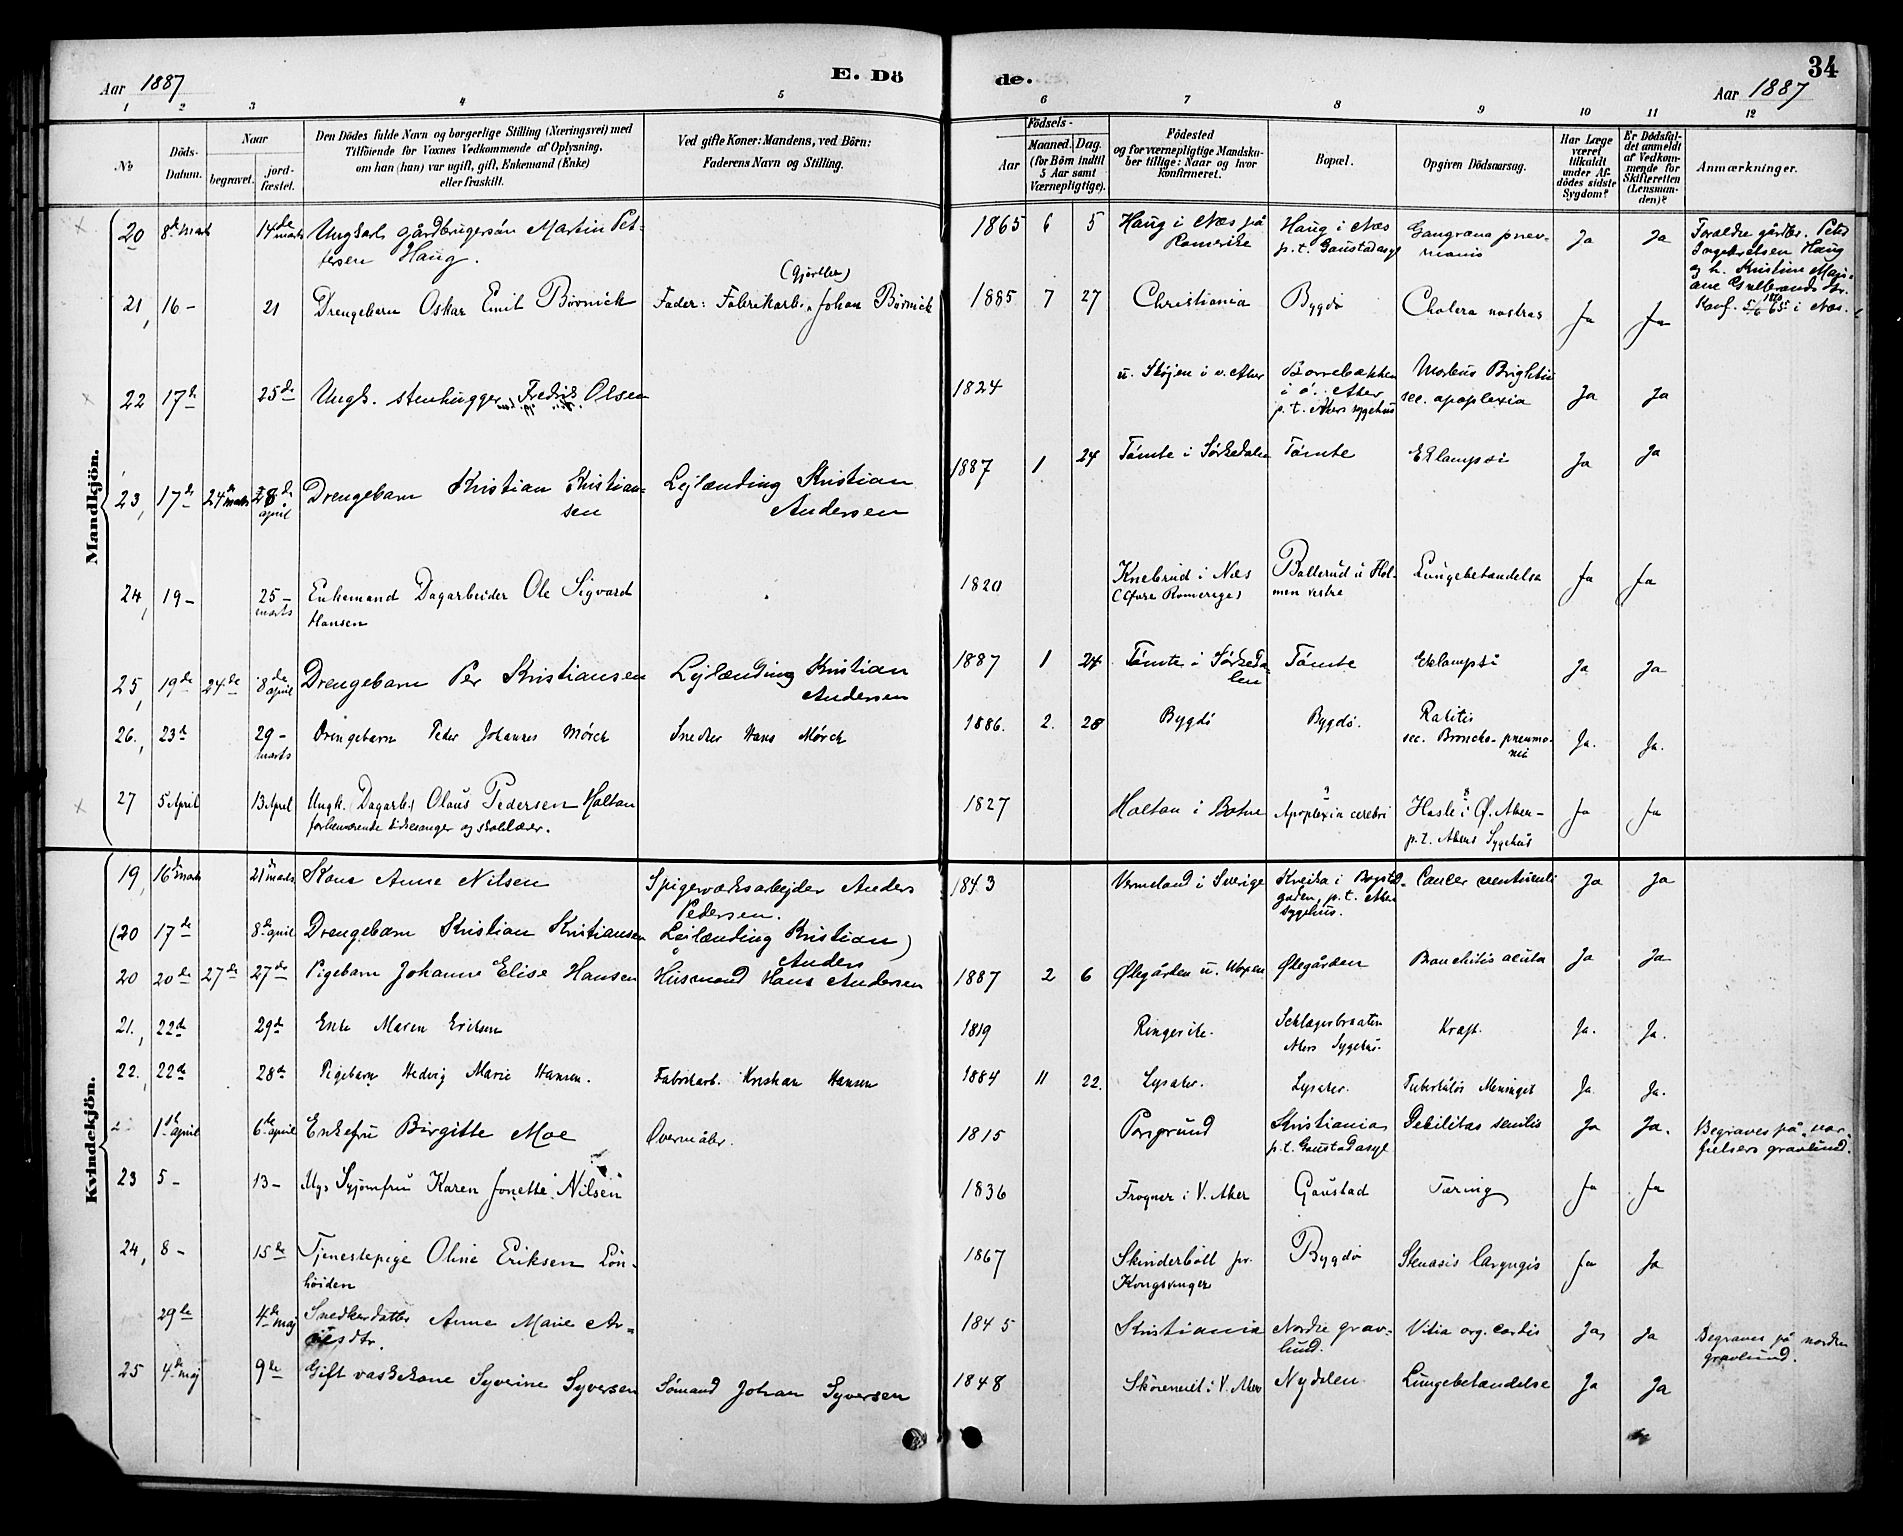 Aar 1887 E. Dö de. Aar 1887 34
1 2 3 4 5 6 7 8 9 10 11 12
No
Döds-Datum.
Naar
begravet.
jord-fæstet.
Den Dödes fulde Navn og borgerlige Stilling (Næringsvei) med
Tilföiende for Voxnes Vedkommende af Oplysning,
om han (hun) var ugift, gift, Enkemand (Enke)
eller fraskilt.
Ved gifte Koner: Mandens, ved Börn:
Faderens Navn og Stilling.
Födsels-
Aar
Maaned. Dag.
(for Börn indtil
5 Aar samt
Værnepligtige).
Födested
og for værnepligtige Mandska-
ber tillige: Naar og hvor
konfirmeret.
Bopæl.
Opgiven Dödsaarsag.
Har Læge
været
tilkaldt
under Af-
dödes sidste
Sygdom?
Er Dödsfal-
det anmeldt
af Vedkom-
mende for
Skifteretten
(Lensman-
den)?
Anmærkninger.
Mandkjön.
20 8de marts 14de marts Ungkarl gårdbrugersön Martin Pet-
tersen Haug. 1865 6 5 Haug i Næs på
Romerike Haug i Næs
p.t. Gaustadasyl Gangræna pnev-
monis Ja Ja Foræl­dre gårdbr. Peter
Ingebretsen Haug
og h. Kristine Mari-
ane Gulbrandsdtr.
21, 16 - 21 Drengebarn Oskar Emil Börnick Fader: Fabrikarb. (Gjørtler) Johan Börnick 1885 7 27 Christiania Bygdö Cholera nostras Ja Ja
22 17de 25de Ungk. stenhugger Fredrik Olsen 1824 u. Skøjen i v. Aker Borrebækken
i ö. Aker
p.t. Akers sygehus Morbus Brightii
sec. apoplexia Ja Ja
23, 17de 24de marts 28de april Drengebarn Kristian Kristian-
sen Lejlænding Kristian
Andersen 1887 1 24 Tömte i Sörkedalen Tömte Eklampsi Ja Ja
24, 19 - 25 - marts Enkemand Dagarbeider Ole Sigvard
Hansen 1820 Knebrud i Næs
(Øvre Romerige) Ballerud u. Hol-
men vestre Lungebetændelse Ja Ja
25, 19de 24de 8de april Drengebarn Per Kristiansen Lejlænding Kristian
Andersen 1887 1 24 Tömte i Sörkeda-
len Tömte Eklampsi Ja Ja
26., 23de 29 - marts Drengebarn Peder Johannes Mörch Snedker Hans Mörch 1886. 2. 28 Bygdö Bygdö. Rakitis
sec. Broncho-pneumo-
nie Ja. Ja.
27 5 April 13 April Ungk. (Dagarb.) Olaus Pedersen Holtan
forhenværende kirkesanger og skolelærer. 1827 Holtan i Botne Apoplexia cerebri Hasle i Ø. Aker -
p.t. Akers Sygehus Ja Ja
Kvindekjön.
19, 16de marts 21de marts Kone Anne Nilsen Spigerværksarbejder Anders
Pedersen. 1843 Vermeland i Sverige i Bogstad-
gaden, p.t. Aker
sygehus. Cancer ventriculi Ja Ja
(20 17de 8de april Drengebarn Kristian Kristiansen Lejlænding Kristian)
Anders
20 20de 27de 27de Pigebarn Johanne Elise Hansen Husmand Hans Andersen 1887 2 6 Ølegården u. Voxen Ølegården Bronchitis acuta Ja Ja
21., 22de 29de Enke Maren Eriksen 1819 Ringerike. Schlagerbraaten
Akers Sygehus. Kræft. Ja. Ja.
22., 22de 28de Pigebarn Hedvig Marie Hansen. Fabrikarb. Kristian Hansen 1884 11 22. Lysaker. Lysaker. Tuberkulös Meningit Ja. Ja.
1de april 6te april Enkefru Birgitte Moe Overmåler. 1815 Porsgrund Kristiania,
p.t. Gaustadasyl Debilitas senilis Ja Ja. Begraves på "vor
frelsers gravlund.
23 5 - 13 - Ugs Syjomfru Karen Jonette Nilsen 1836 Frogner i V. Aker Gaustad Tæring Ja Ja
24, 8 - 15de Tjenestepige Oline Eriksen Lön-
höiden 1867 Skinderböll pr.
Kongsvinger Bygdö Stenosis laryngis Ja Ja
29de 4de maj Snedkerdatter Anne Marie Ar-
esdtr. 1845 Kristiania Nordre grav-
lund. Vitia org. cordis Ja, Ja Begraves på nordre
gravlund.
25 4de maj 9de Gift vaskekone Syverine Syversen Sömand Johan Syversen 1848 i V. Aker Nydalen Lungebetændelse Ja Ja